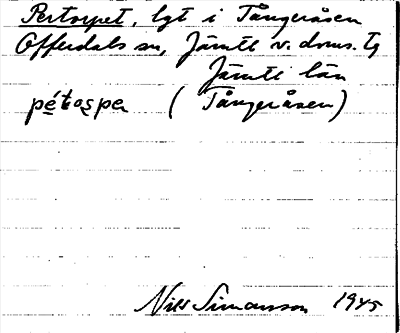 Pertorpet, lgt i Tångeråsen
Offerdals sn, Jämtl v. doms. tg
Jämtl län
pétospa (Tångeråsen)
Nils Simonsson 1945